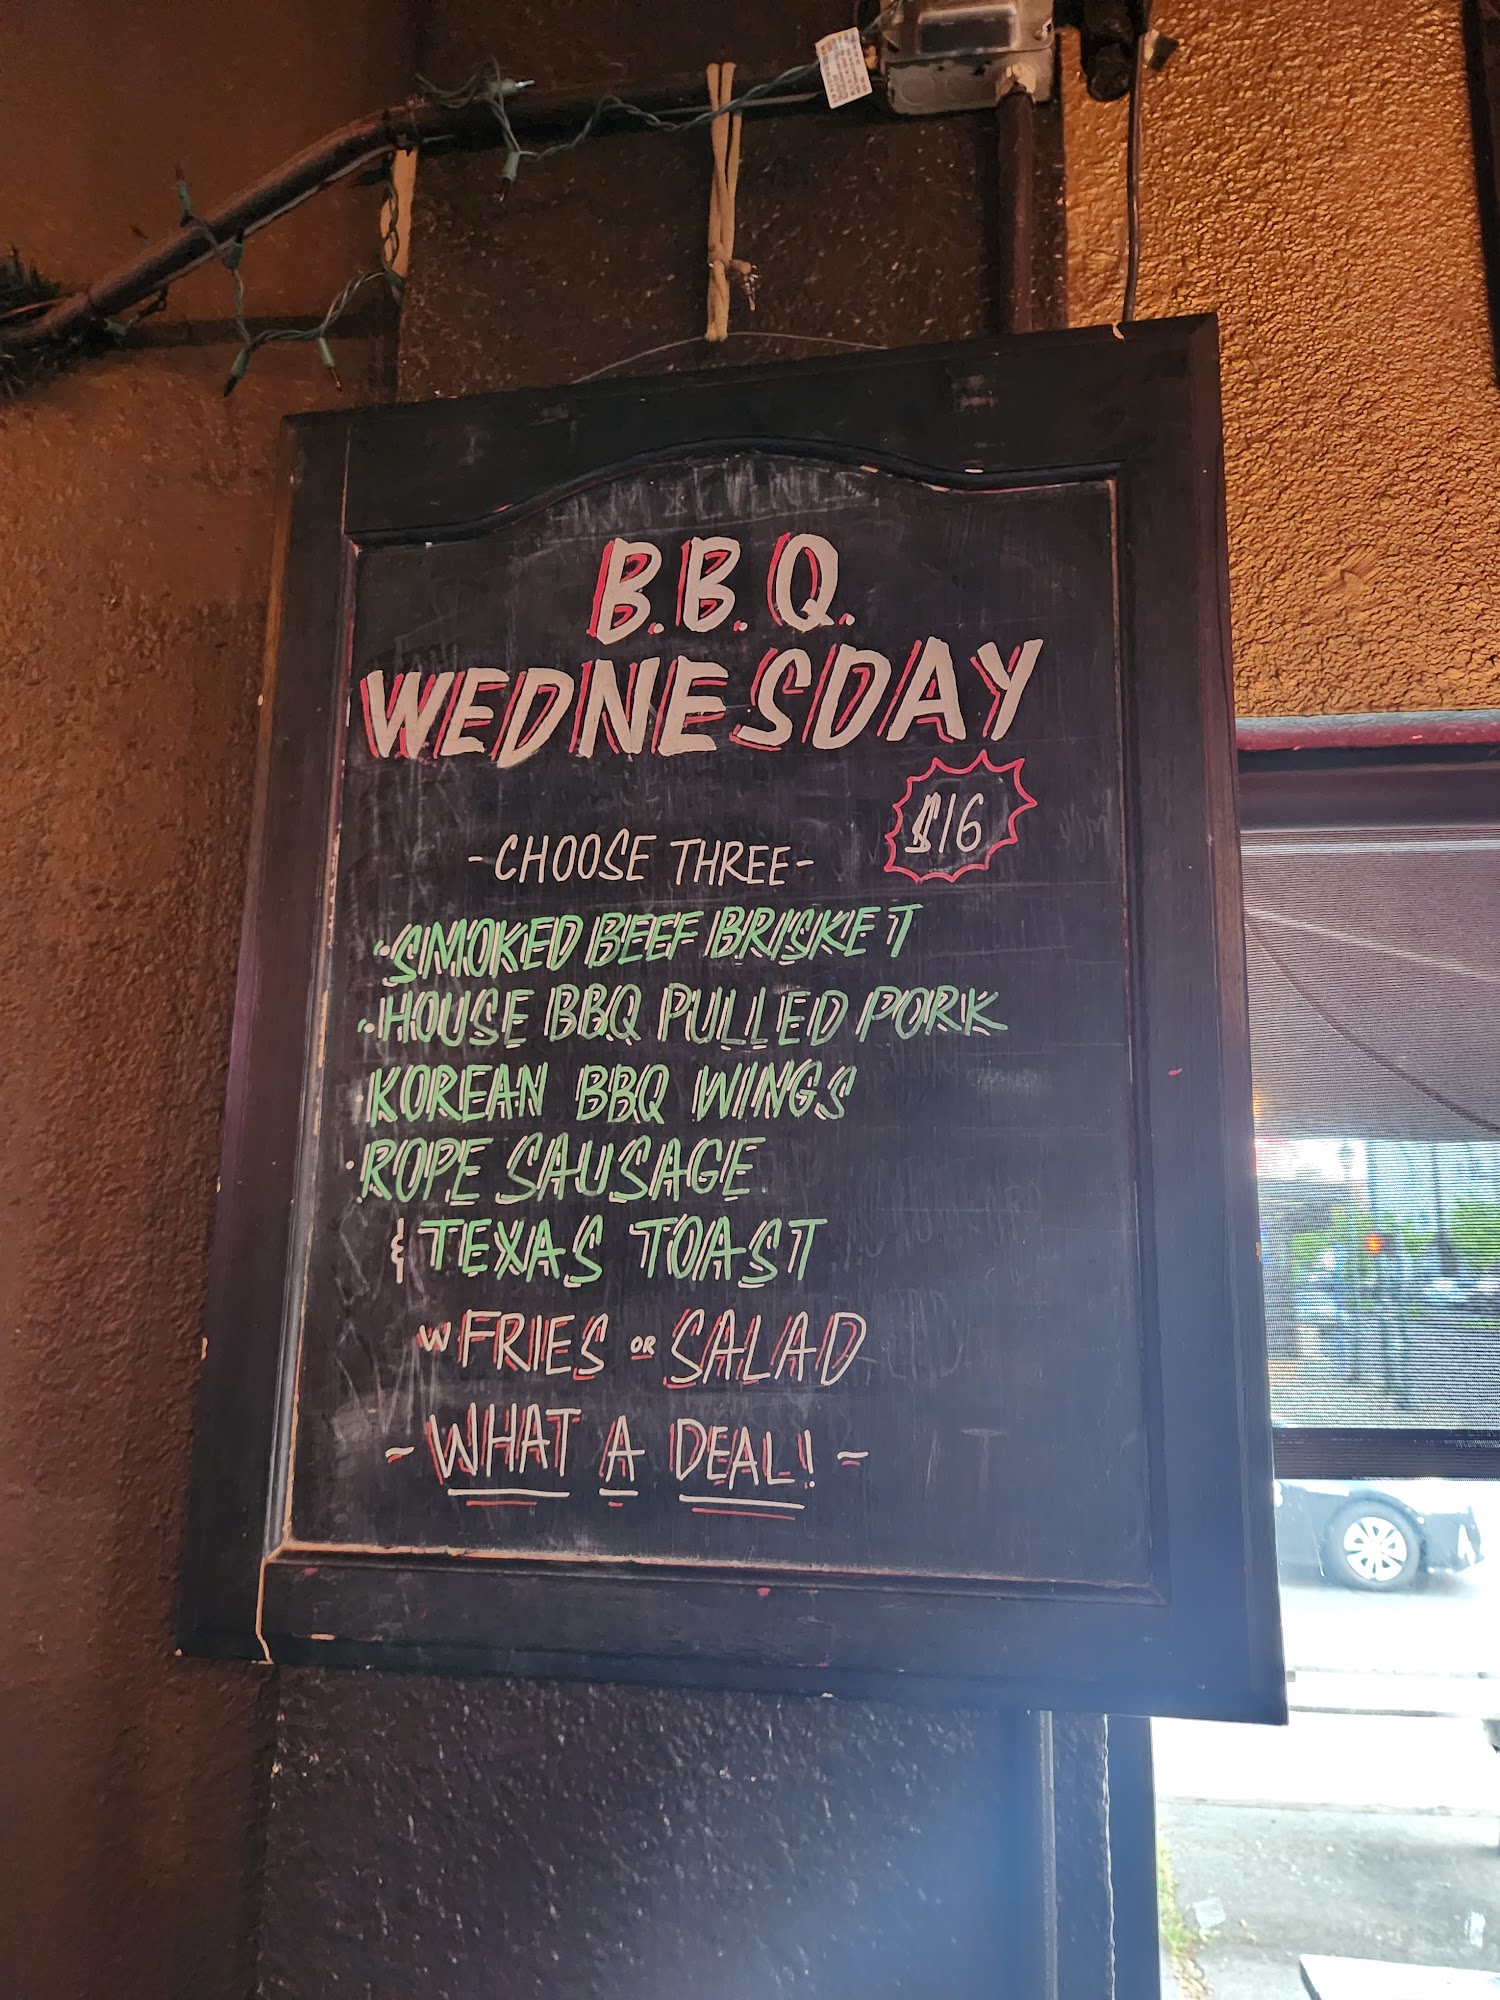 B.B.Q.
WEDNESDAY
$16
-CHOOSE THREE-
·SMOKED BEEF BRISKET
·HOUSE BBQ PULLED PORK
·KOREAN BBQ WINGS
·ROPE SAUSAGE
& TEXAS TOAST
W FRIES OR SALAD
- WHAT A DEAL! -